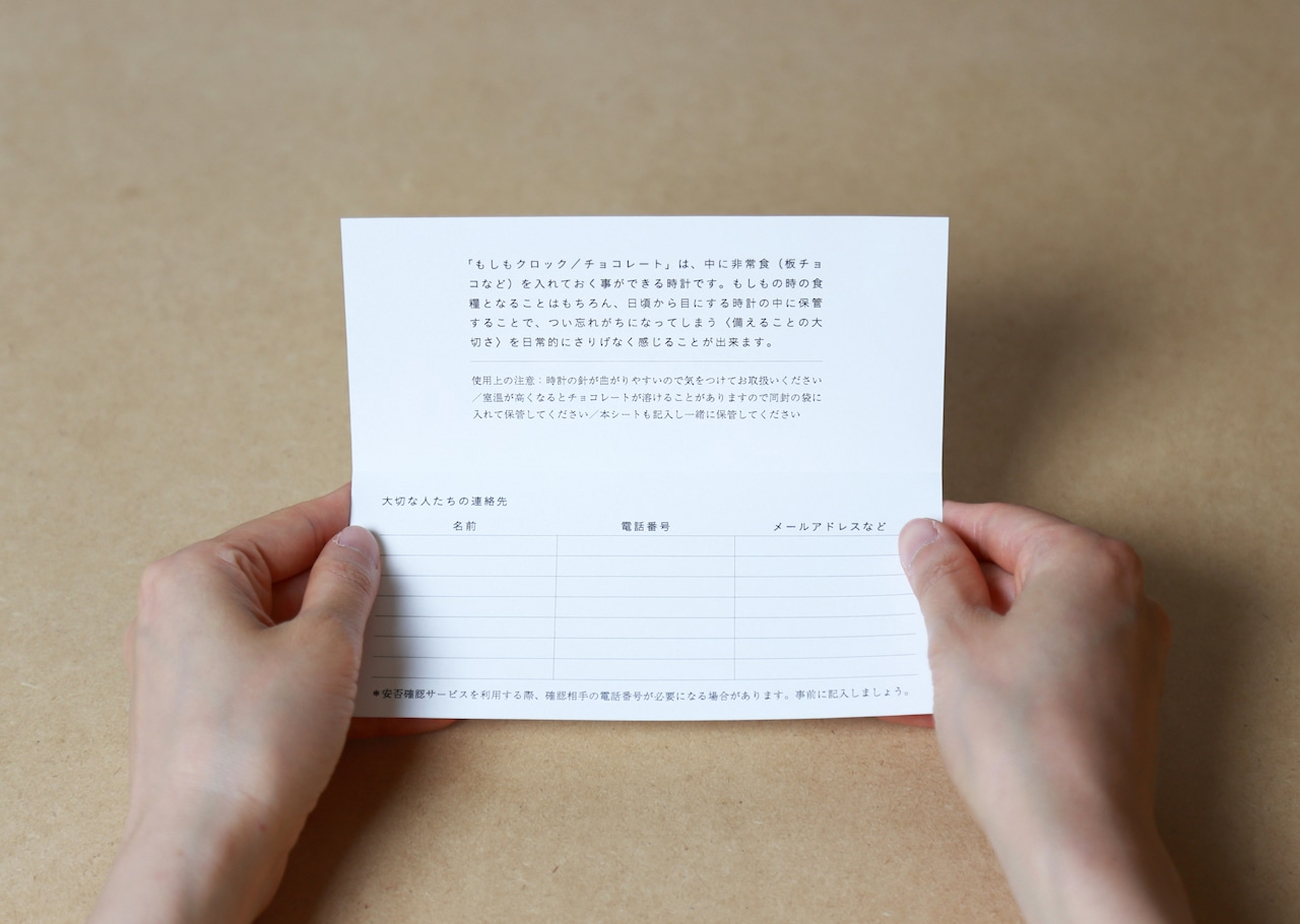 「もしもクロック／チョコレート」は、中に非常食（板チョ
コなど）を入れておく事ができる時計です。もしもの時の食
糧となることはもちろん、日頃から目にする時計の中に保管
することで、つい忘れがちになってしまう〈備えることの大
切さ〉を日常的にさりげなく感じることが出来ます。
使用上の注意：時計の針が曲がりやすいので気をつけてお取扱いください
／室温が高くなるとチョコレートが溶けることがありますので同封の袋に
入れて保管してください／本シートも記入し一緒に保管してください
大切な人たちの連絡先
名前 電話番号 メールアドレスなど
＊安否確認サービスを利用する際、確認相手の電話番号が必要になる場合があります。事前に記入しましょう。